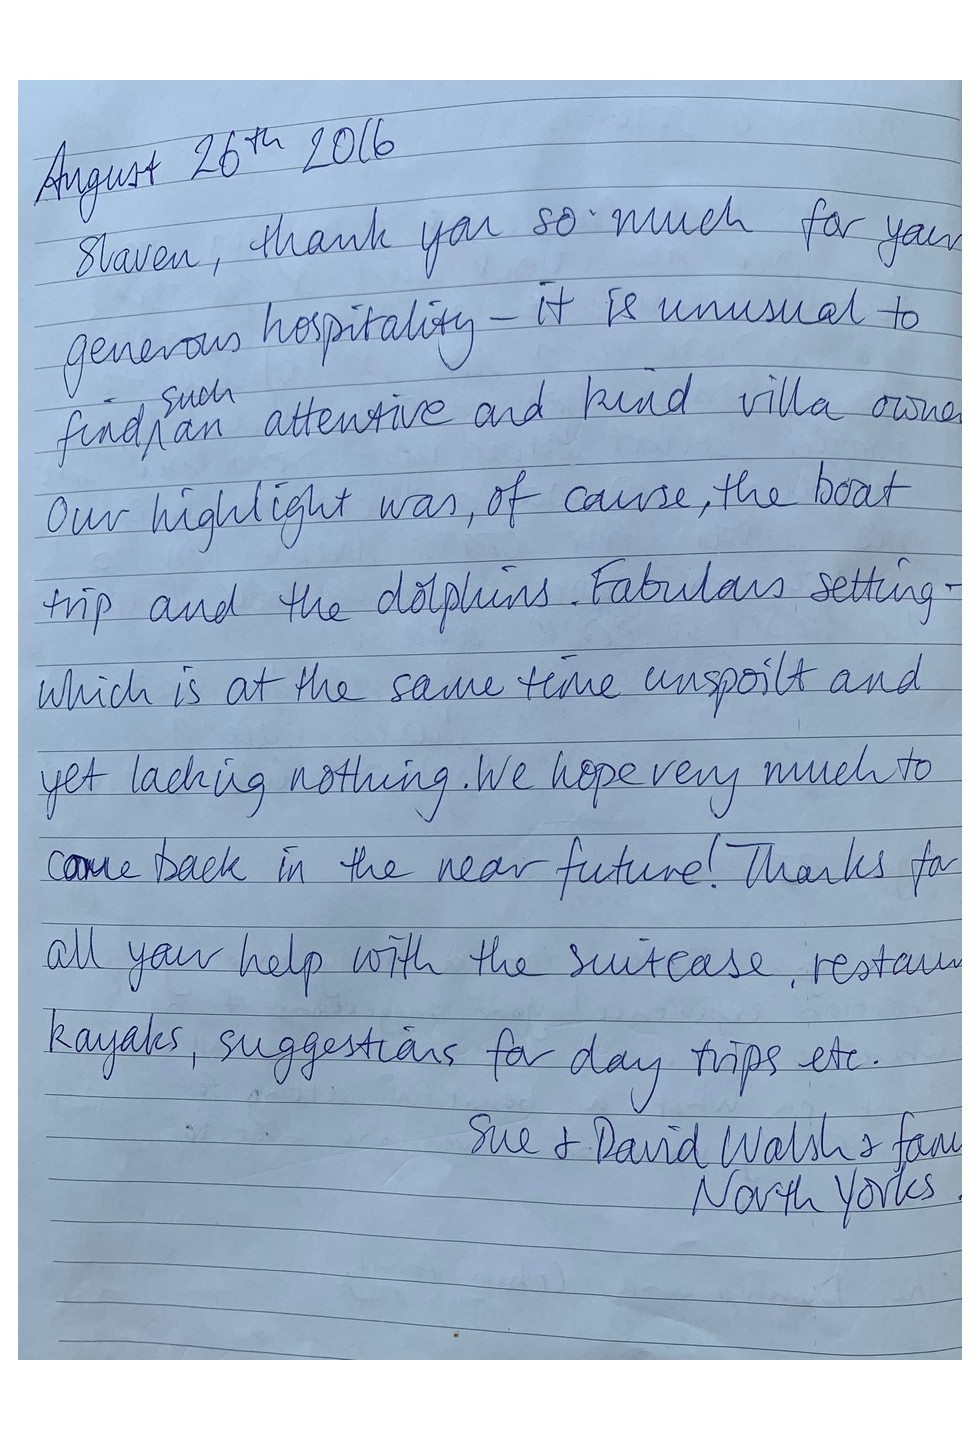 August 26th 2016
Slaven, thank you so much for your
generous hospitality – it is unusual to
find such an attentive and kind villa owner
Our highlight was, of cause, the boat
trip and the dolphins. Fabulous setting -
which is at the same time unspoilt and
yet lacking nothing. We hope very much to
come back in the near future! Thanks for
all your help with the suitcase, restaur
kayaks, suggestions for day trips etc.
Sue & David Walsh & fam
North Yorks.